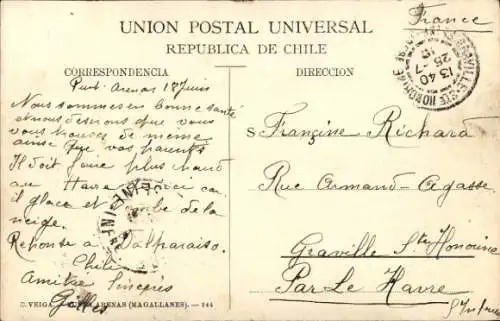 France
UNION POSTAL UNIVERSAL
REPUBLICA DE CHILE
CORRESPONDENCIA
DIRECCION
Punt. Arenas 18 Juin
Nous sommes en bonne santé
et nous désirons que vous
vous trouvez de meme
ainsi que vos parents
Il doit faire plus chaud
au Havre qu'ici car
il glace et tombe de la
neige.
Reponse a Valparaiso.
Chili
Amitié Sincères
Gilles
S Françine Richard
Rue Armand-Agasse
Graville Ste Honorine
Par Le Havre
S Infre
GRAVILLE-STE HONORINE
13 40
25-7
SEINE-INFRE
C. VEIGA. PUNTA ARENAS (MAGALLANES). — 144